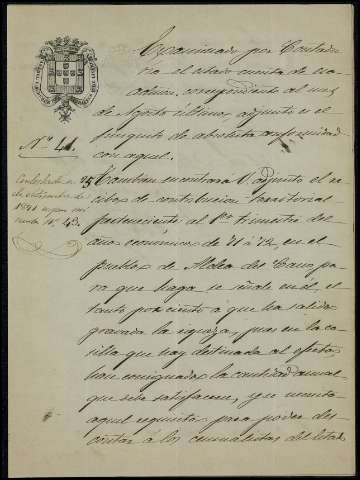 Examinado por Contadu
ria el estado cuenta de co
adores, correspondiente al mes
de Agosto último, adjunto es el
finiquito de absoluta conformidad
con aquel.
Nº 41.
Contestado en 25
de setiembre de
1871 según mi
nuta nº 43.
Tambien encontrará V. adjunto el re
cibo de contribucion territorial
perteneciente al 1er trimestre del
año económico de 71 á 72, en el
pueblo de Aldea del Cano pa
ra que haga se señale en él, el
tanto por ciento á que ha salido
gravada la riqueza, pues en la ca
silla que hay destinada al efecto,
han consignado la cantidad anual
que debe satisfacerse, y se necesita
aquel requisito para poder des
contar á los censualistas del Estado